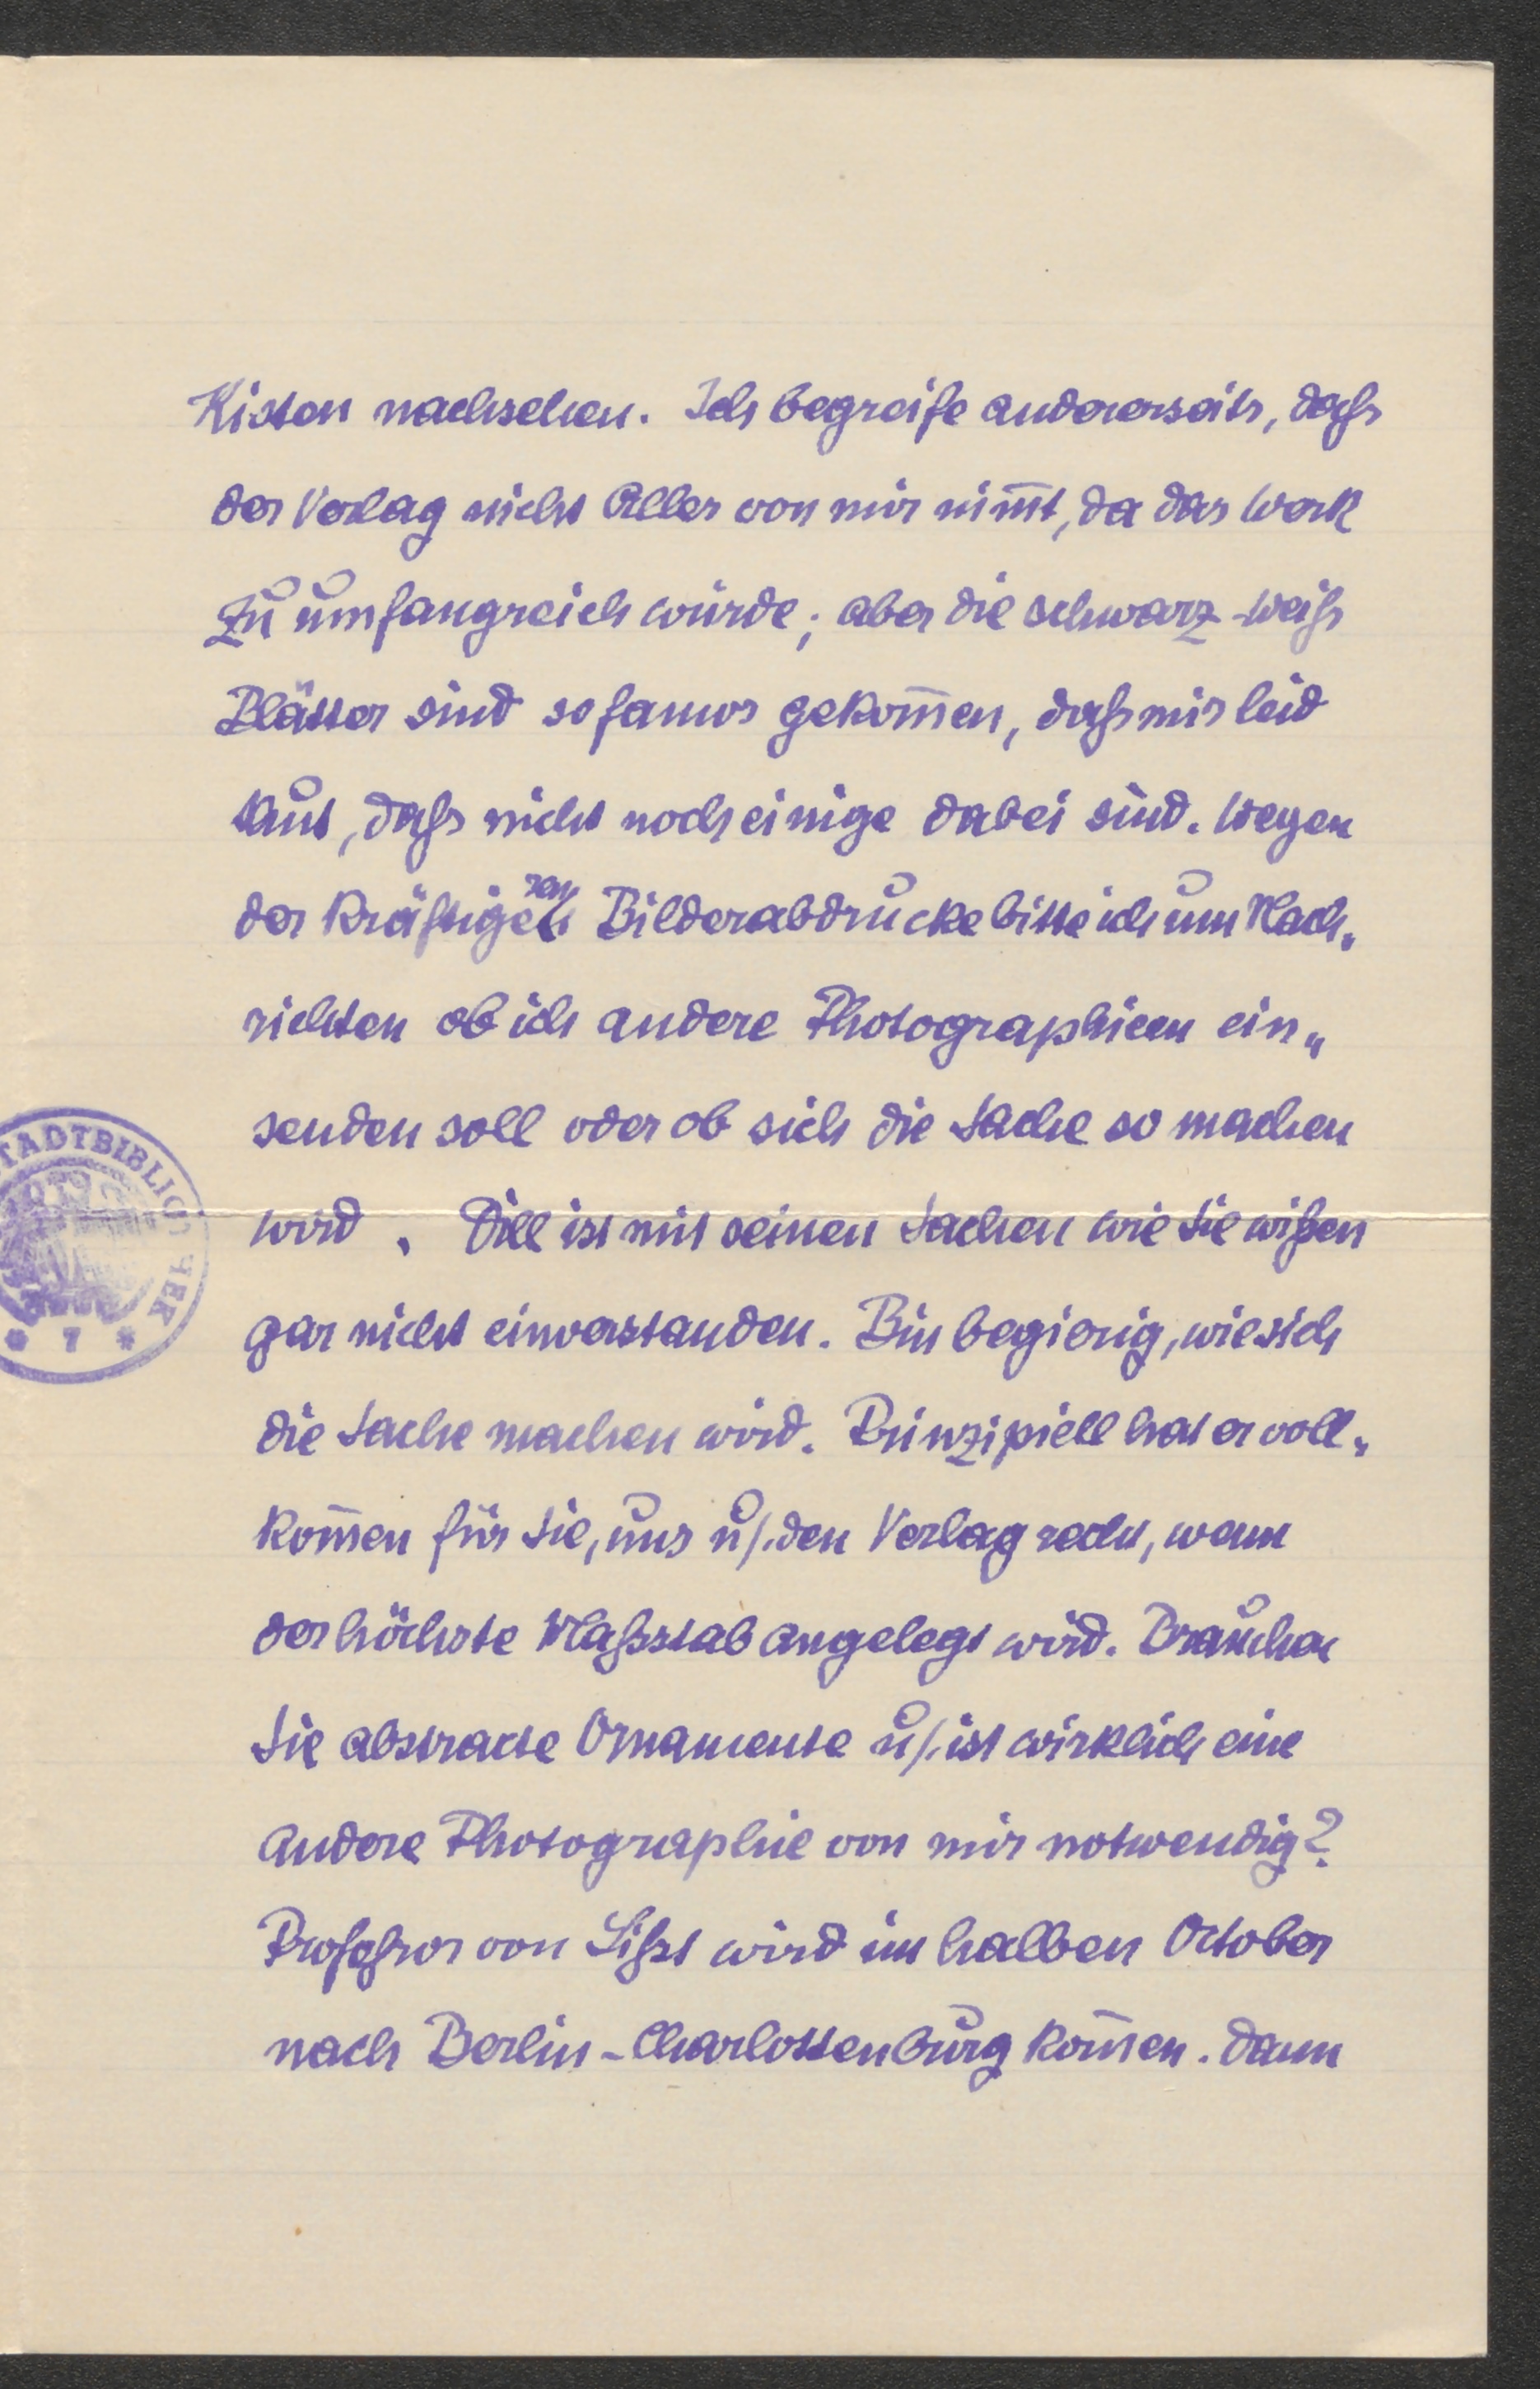 Kisten nachsehen. Ich begreife andererseits, daſs
der Verlag nicht Alles von mir nim̅t, da das Werk
zu umfangreich würde; aber die schwarz-weiſs
Blätter sind so famos gekom̅en, daſs mir leid
thut, daſs nicht noch einige dabei sind. Wegen
der kräftigeren Bilderabdrucke bitte ich um Nach„
richten ob ich andere Photographieen ein„
senden soll oder ob sich die Sache so machen
wird. Dill ist mit seinen Sachen wie Sie wiſsen
gar nicht einverstanden. Bin begierig, wie sich
die Sache machen wird. Prinzipiell hat er voll„
kom̅en für Sie, uns u/. den Verlag recht, wenn
der höchste Maſsstab angelegt wird. Brauchen
Sie abstracte Ornamente u/. ist wirklich eine
andere Photographie von mir notwendig?
Profeſsor von Liſzt wird im halben October
nach Berlin-Charlottenburg kom̅en. Dann
STADTBIBLIOTHEK
* 7 *